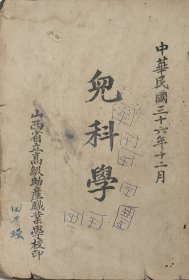 中華民國三十六年十二月
兒科學
山西省立高級助產職業學校印